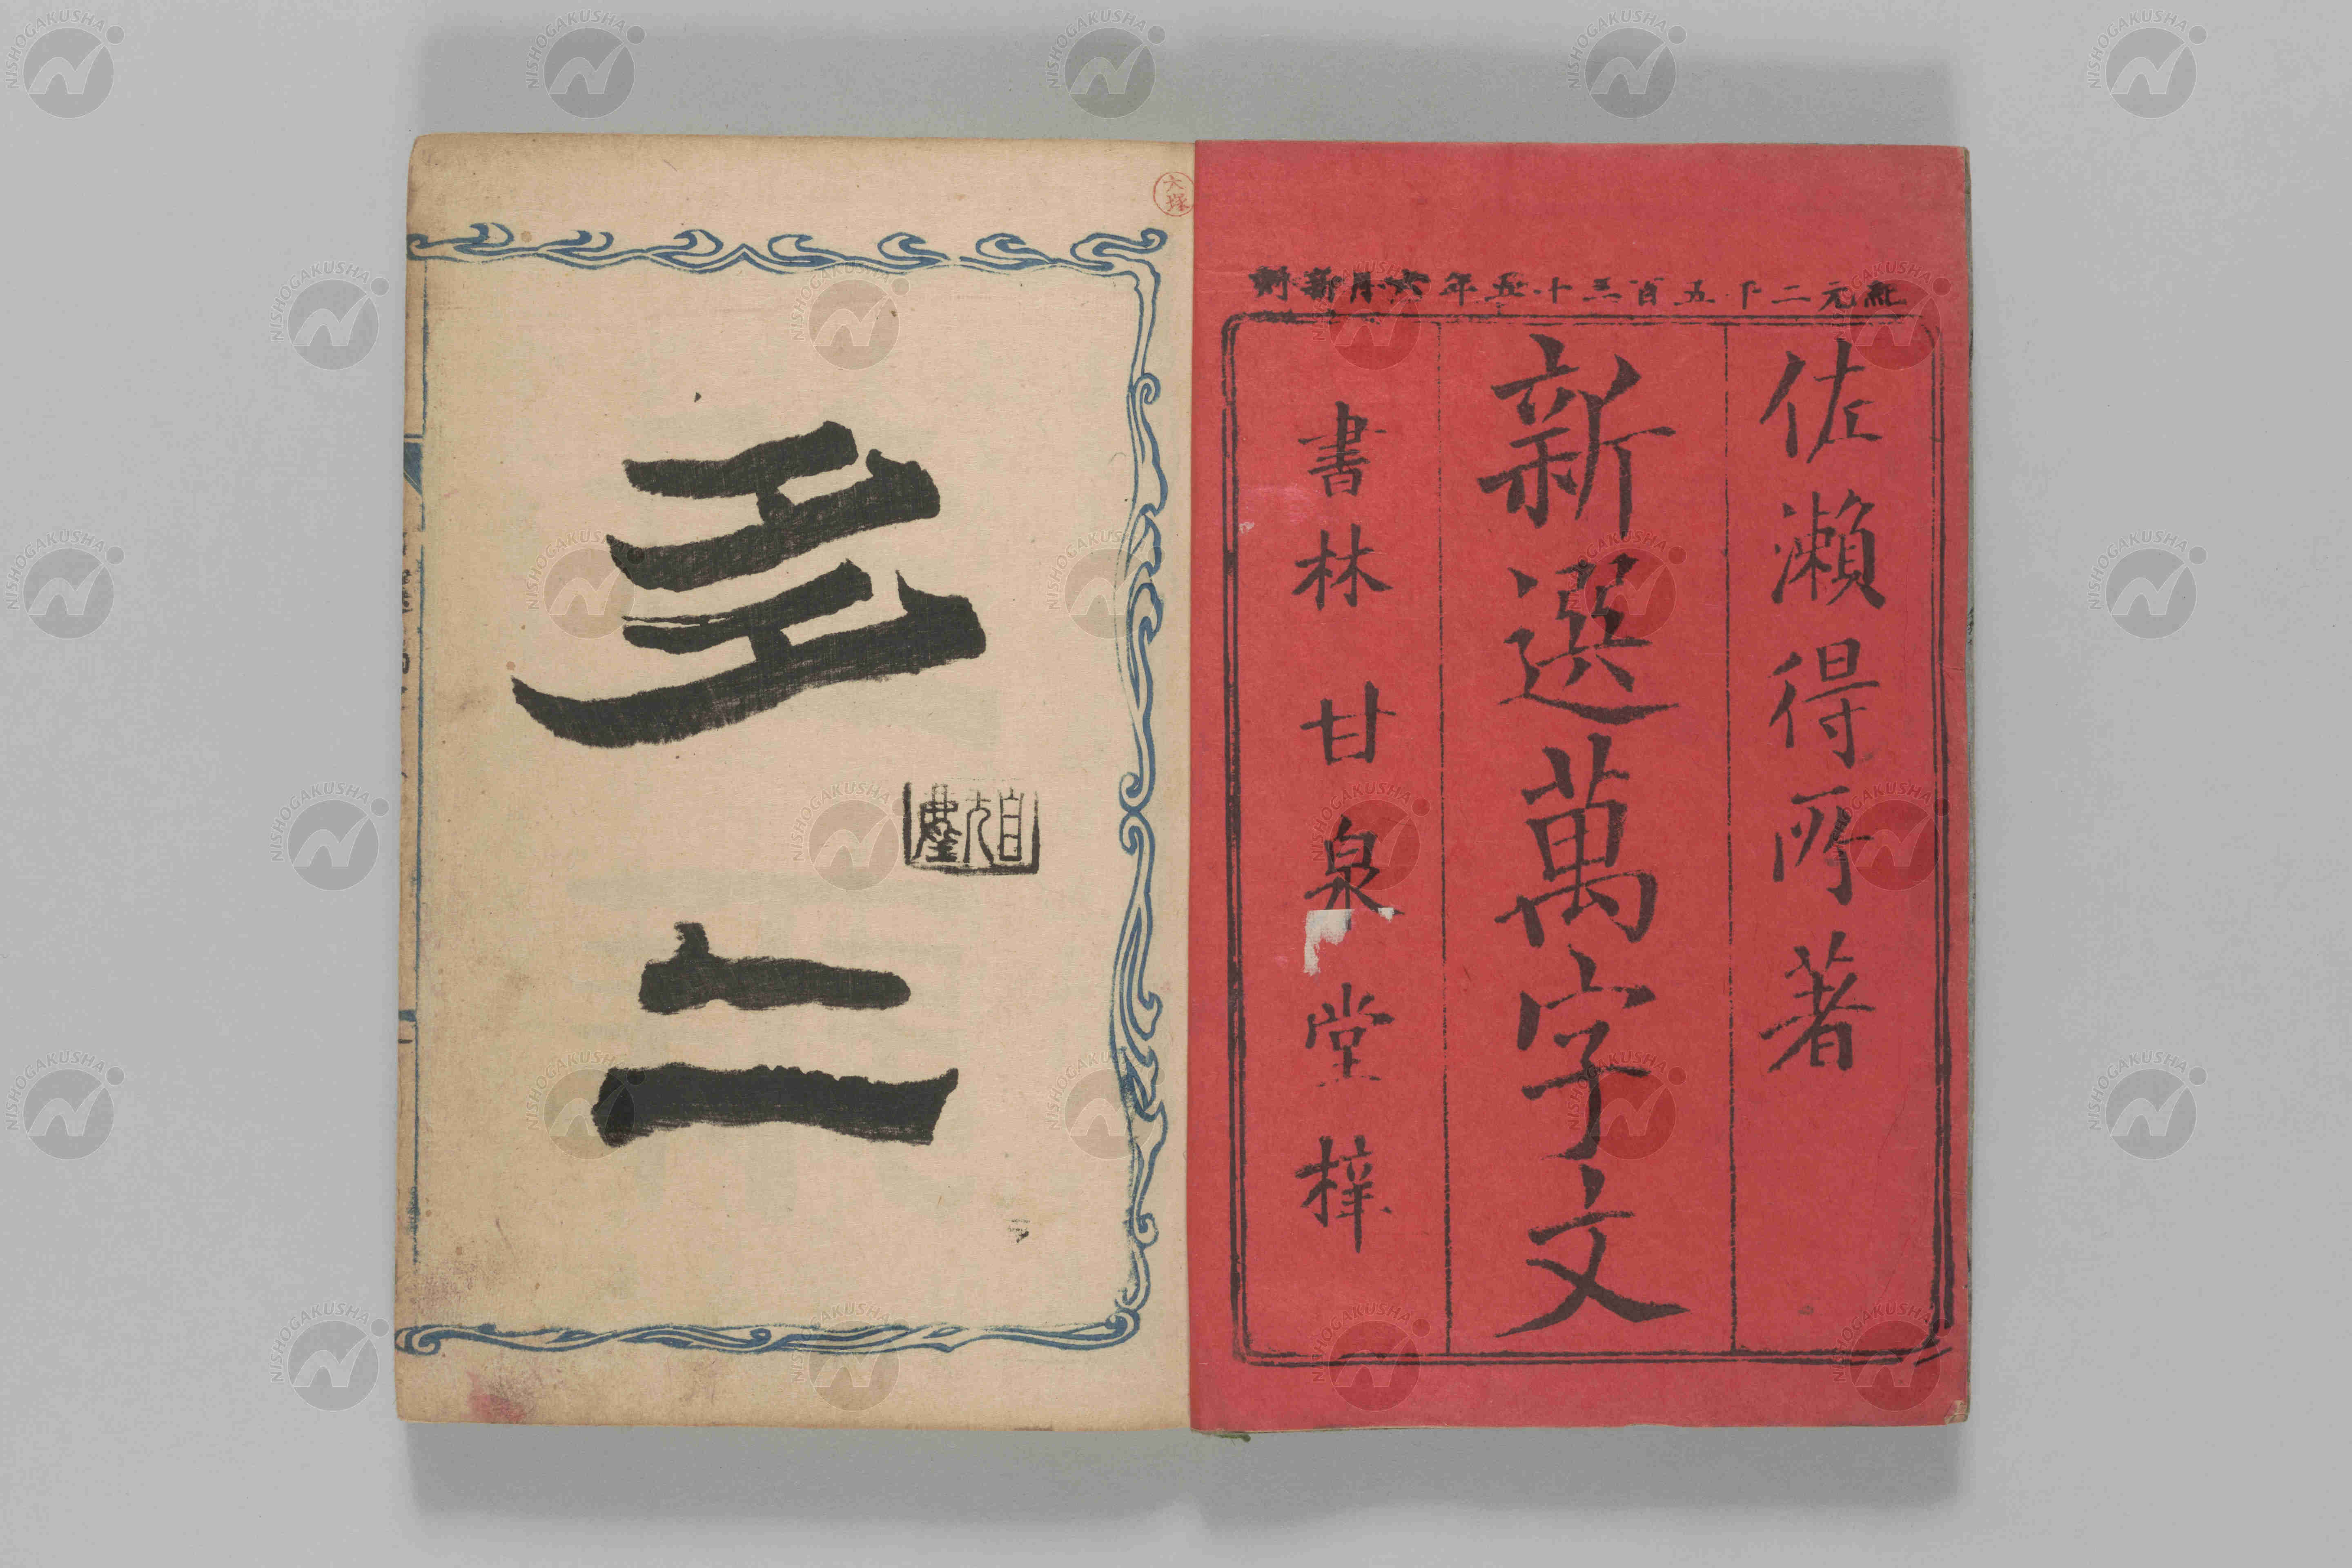 紀元二千五百三十五年六月新刻
佐瀨得所著
新選萬字文
書林 甘泉堂梓
大塚
多二
NISHOGAKUSHA